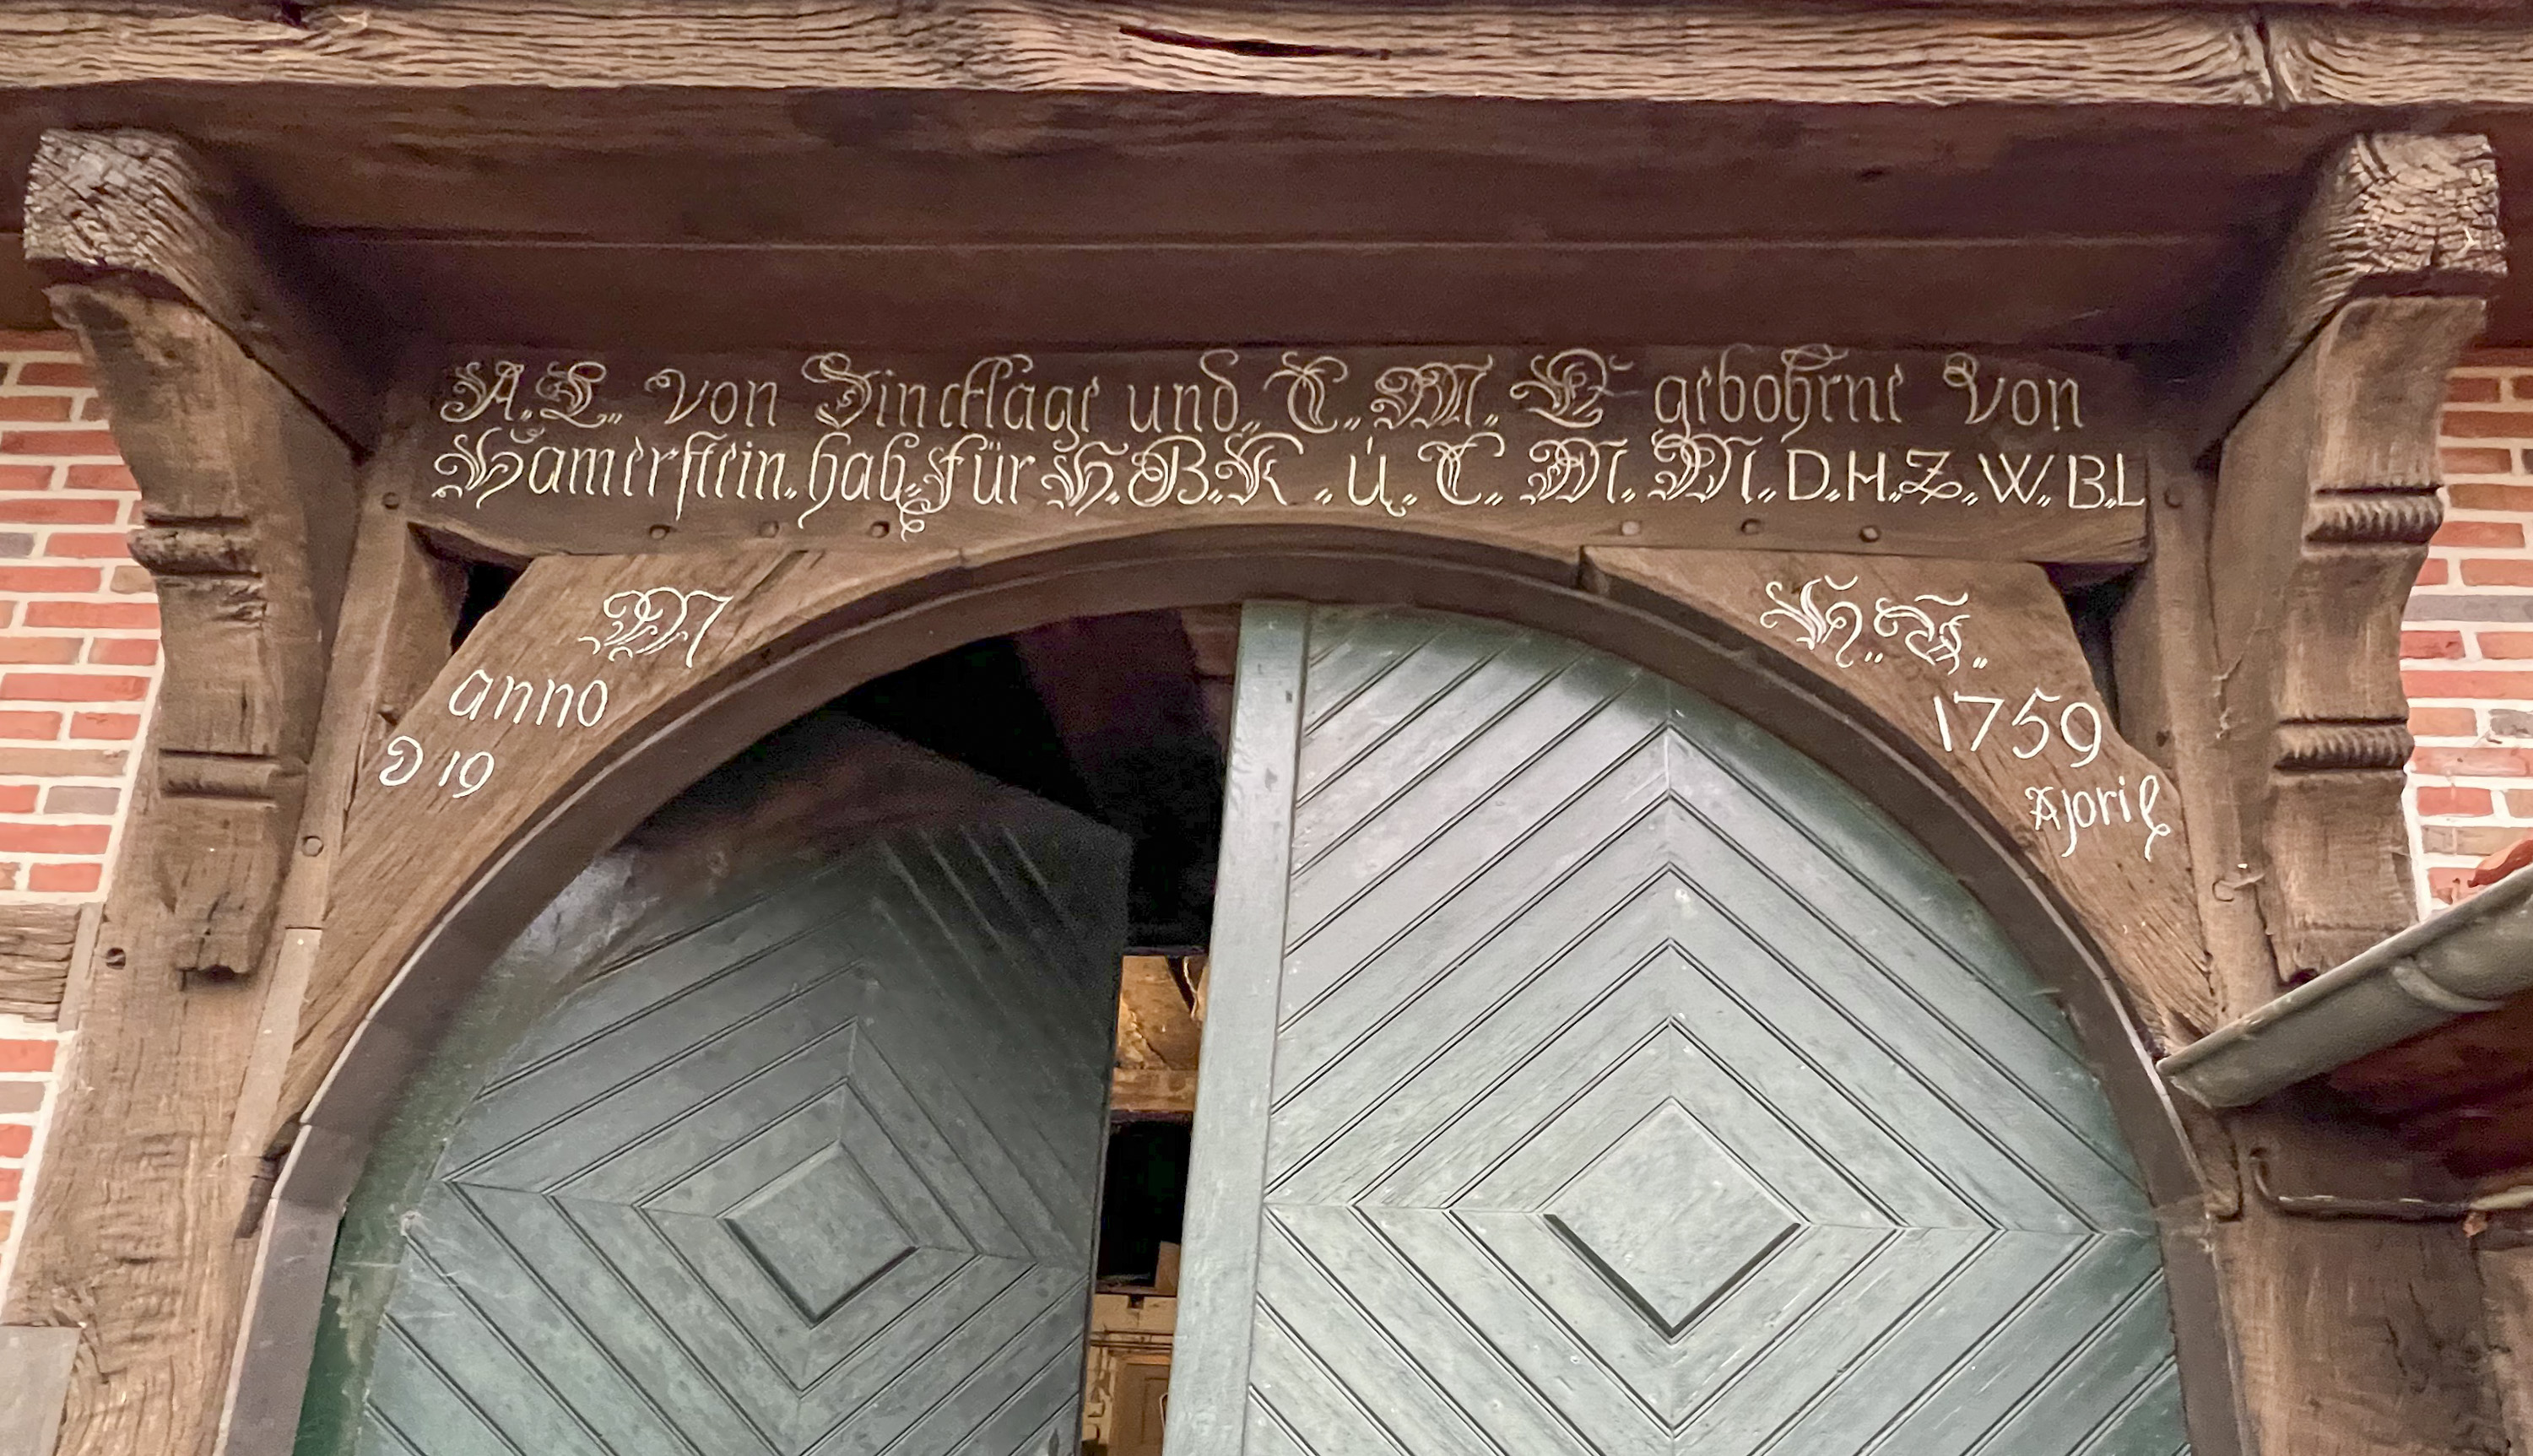 A. L. von Dincklage und. C. M. L gebohrne von
Hamerstein. hab. für H. B. K. u. C. M. M. D. H. Z. W. B. L
M
H. T.
anno
1759
D 19
April